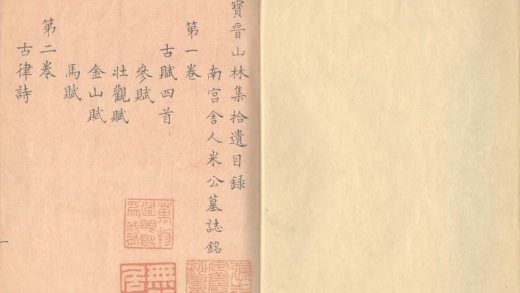 寶晉山林集拾遺目錄
南宮舍人米公墓誌銘
第一卷
古賦四首
參賦
壯觀賦
金山賦
馬賦
第二卷
古律詩
一